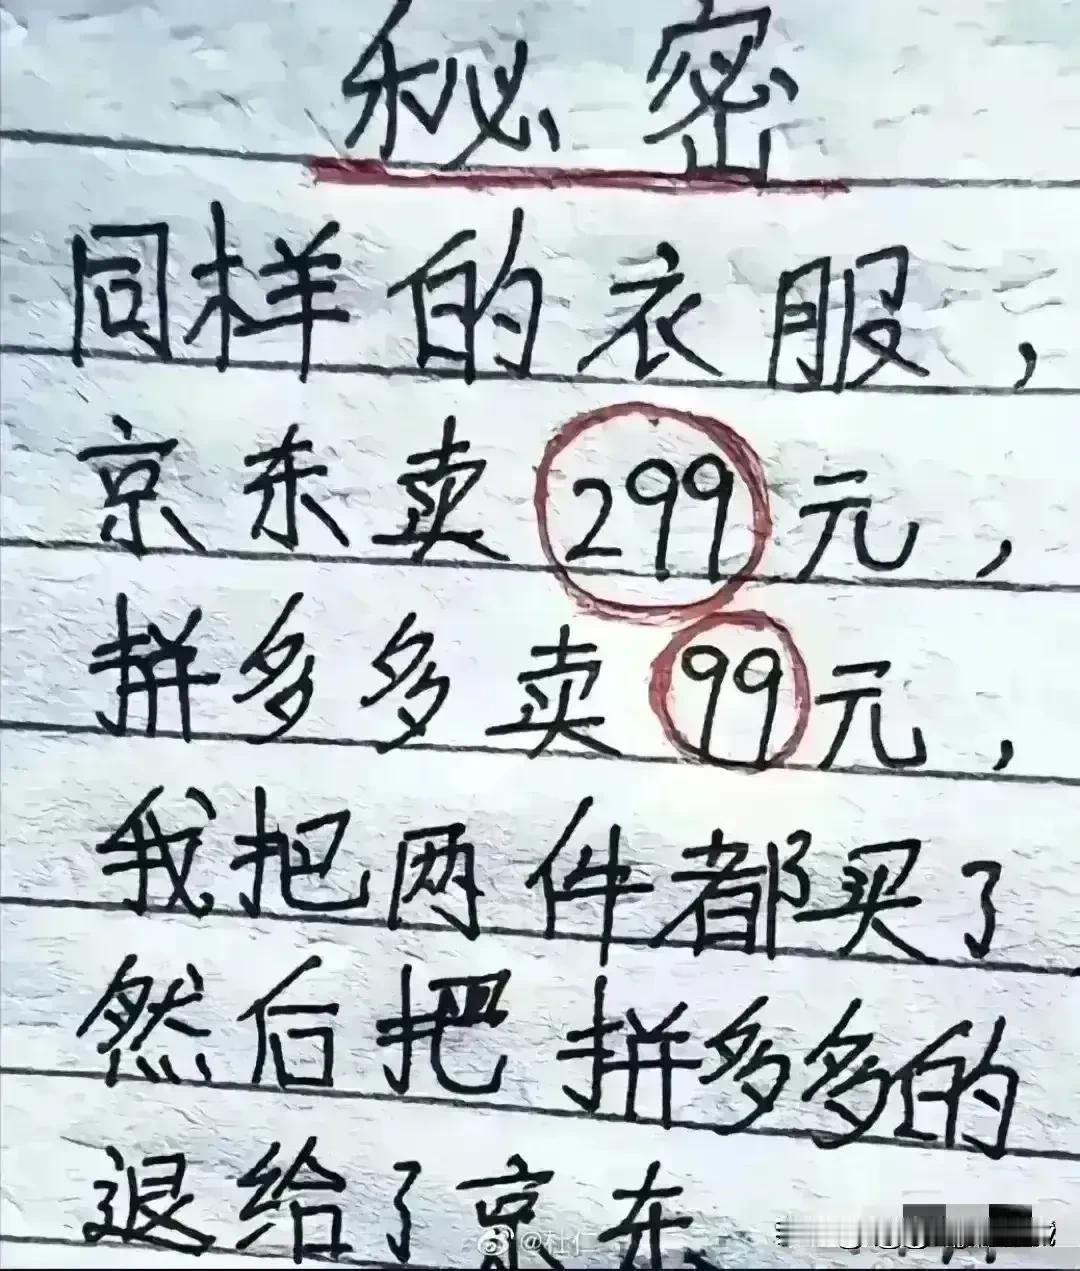 秘密
同样的衣服，
京东卖299元，
拼多多卖99元，
我把两件都买了
然后把拼多多的
退给了京东
@杜仁